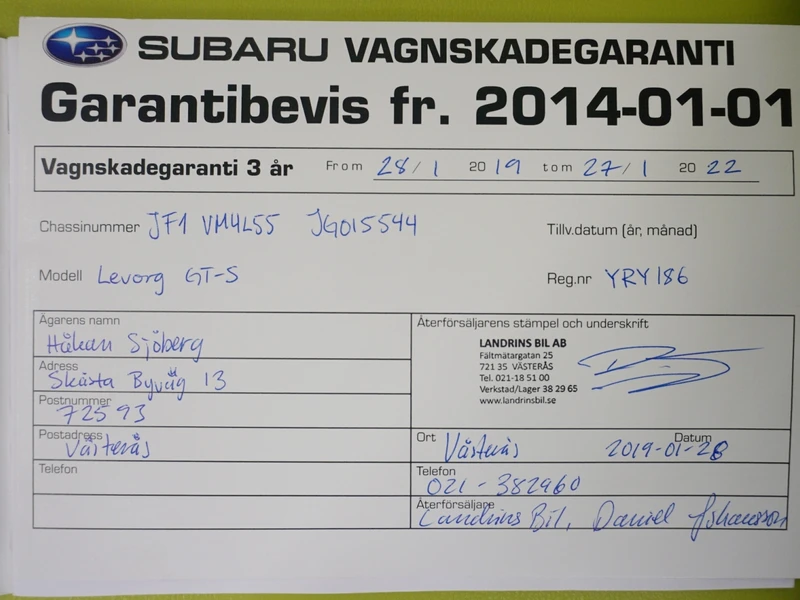 SUBARU VAGNSKADEGARANTI
Garantibevis fr. 2014-01-01
Vagnskadegaranti 3 år From 28/1 2019 tom 27/1 2022
Chassinummer JF1 VM4L55 JG015544 Tillv.datum (år, månad)
Modell Levorg GT-S Reg.nr YRY186
Ägarens namn
Håkan Sjöberg
Adress
Skästa Byväg 13
Postnummer
72593
Postadress
Västerås
Telefon
Återförsäljarens stämpel och underskrift
LANDRINS BIL AB
Fältmätargatan 25
721 35 VÄSTERÅS
Tel. 021-18 51 00
Verkstad/Lager 38 29 65
www.landrinsbil.se
Ort Västerås Datum 2019-01-28
Telefon
021-382960
Återförsäljare
Landrins Bil, Daniel Johansson